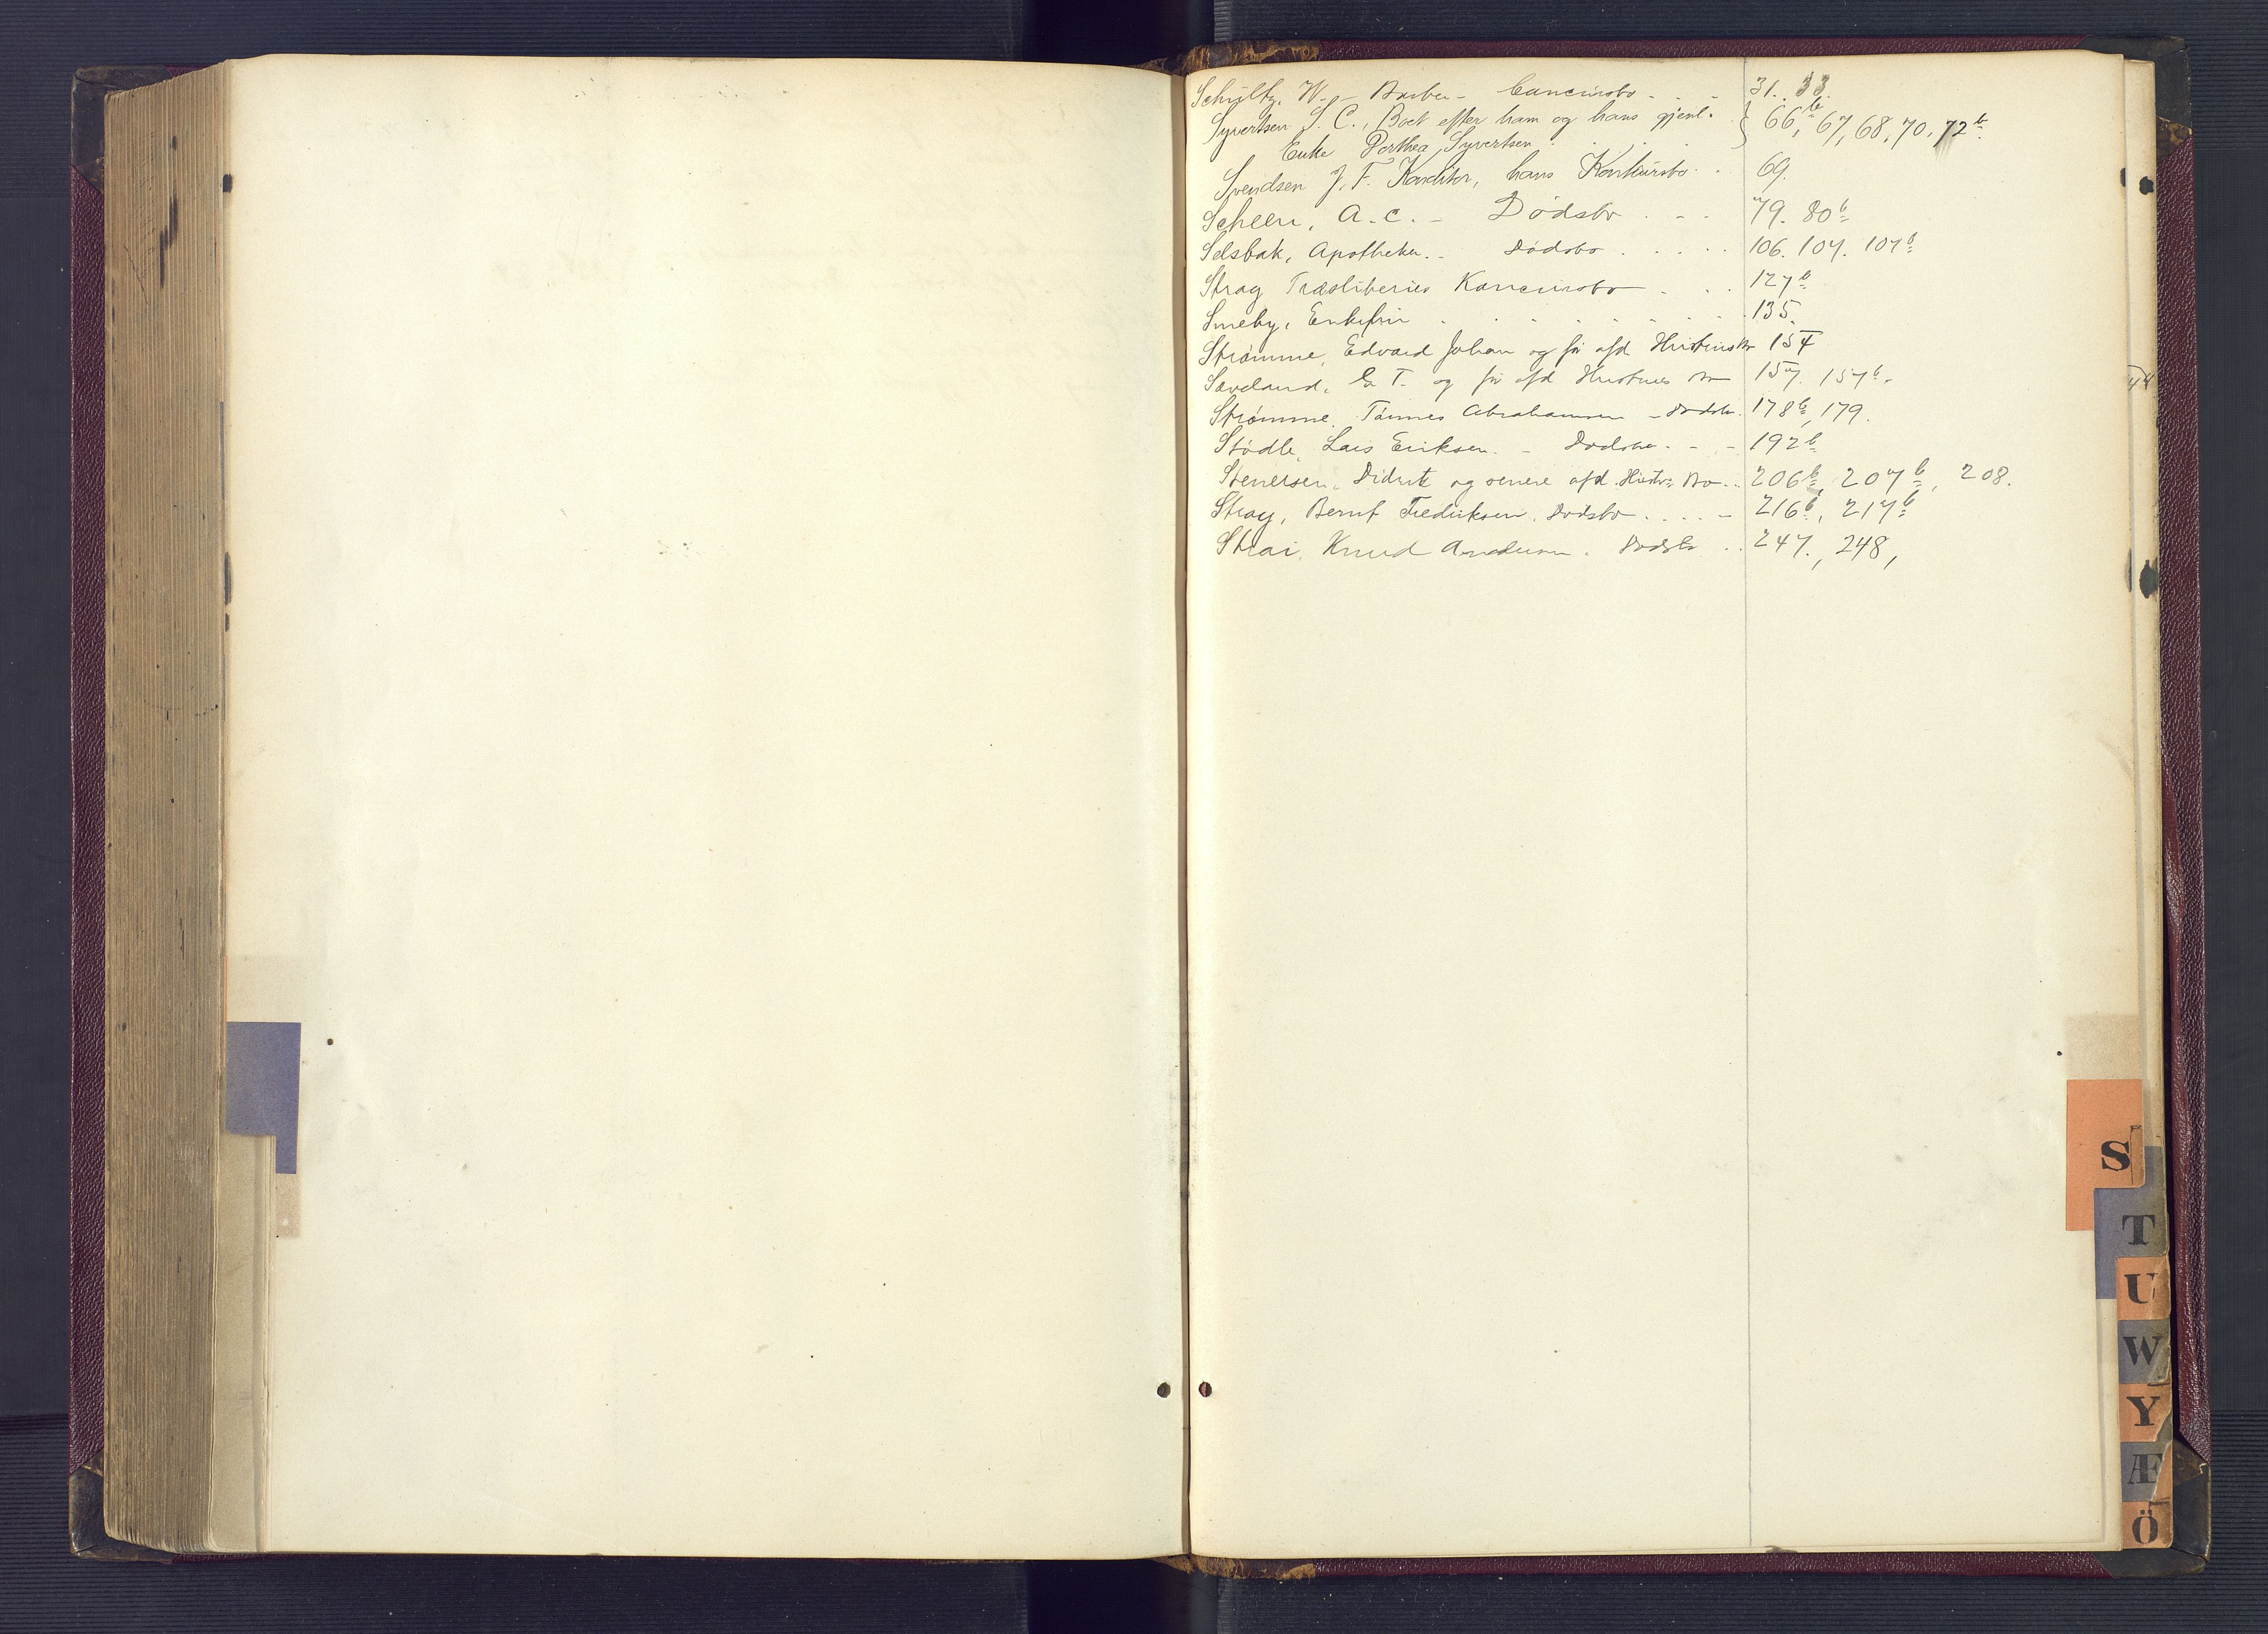 Schultz, W. - Barber - Concursbo - - - 31. 33.
Syvertsen S. C., Boet efter ham og hans gjenl. } 66b, 67, 68, 70, 72b.
Enke Dorthea Syvertsen . . . .
Svendsen J. F. Konditor, hans Konkursbo . . 69.
Scheen, A. C. - Dödsbo . - - 79. 80b
Selsbak, Apotheker. - Dødsbo . . . . 106. 107. 107b
Stray Træsliberies Concursbo - . . 127b
Smeby, Enkefru . . . . . . . . 135.
Strømme, Edvard Johan og før afd Hustrus Bo 154
Sæveland, T. og før afd Hustrues Bo 157. 157b.
Strømme, Tønnes Abrahamsen - Dødsbo. 178b, 179.
Stødle, Lars Eriksen. - Dødsbo - - - 192b
Stenersen, Didrik og senere afd. Hustrs Bo . . 206b, 207b, 208.
Stray, Bernt Fredriksen, Dødsbo . . . . - 216b, 217b
Strai, Knud Andersen. Dødsbo . . 247., 248,
44
S
T
U
W
Y
Æ
Ö